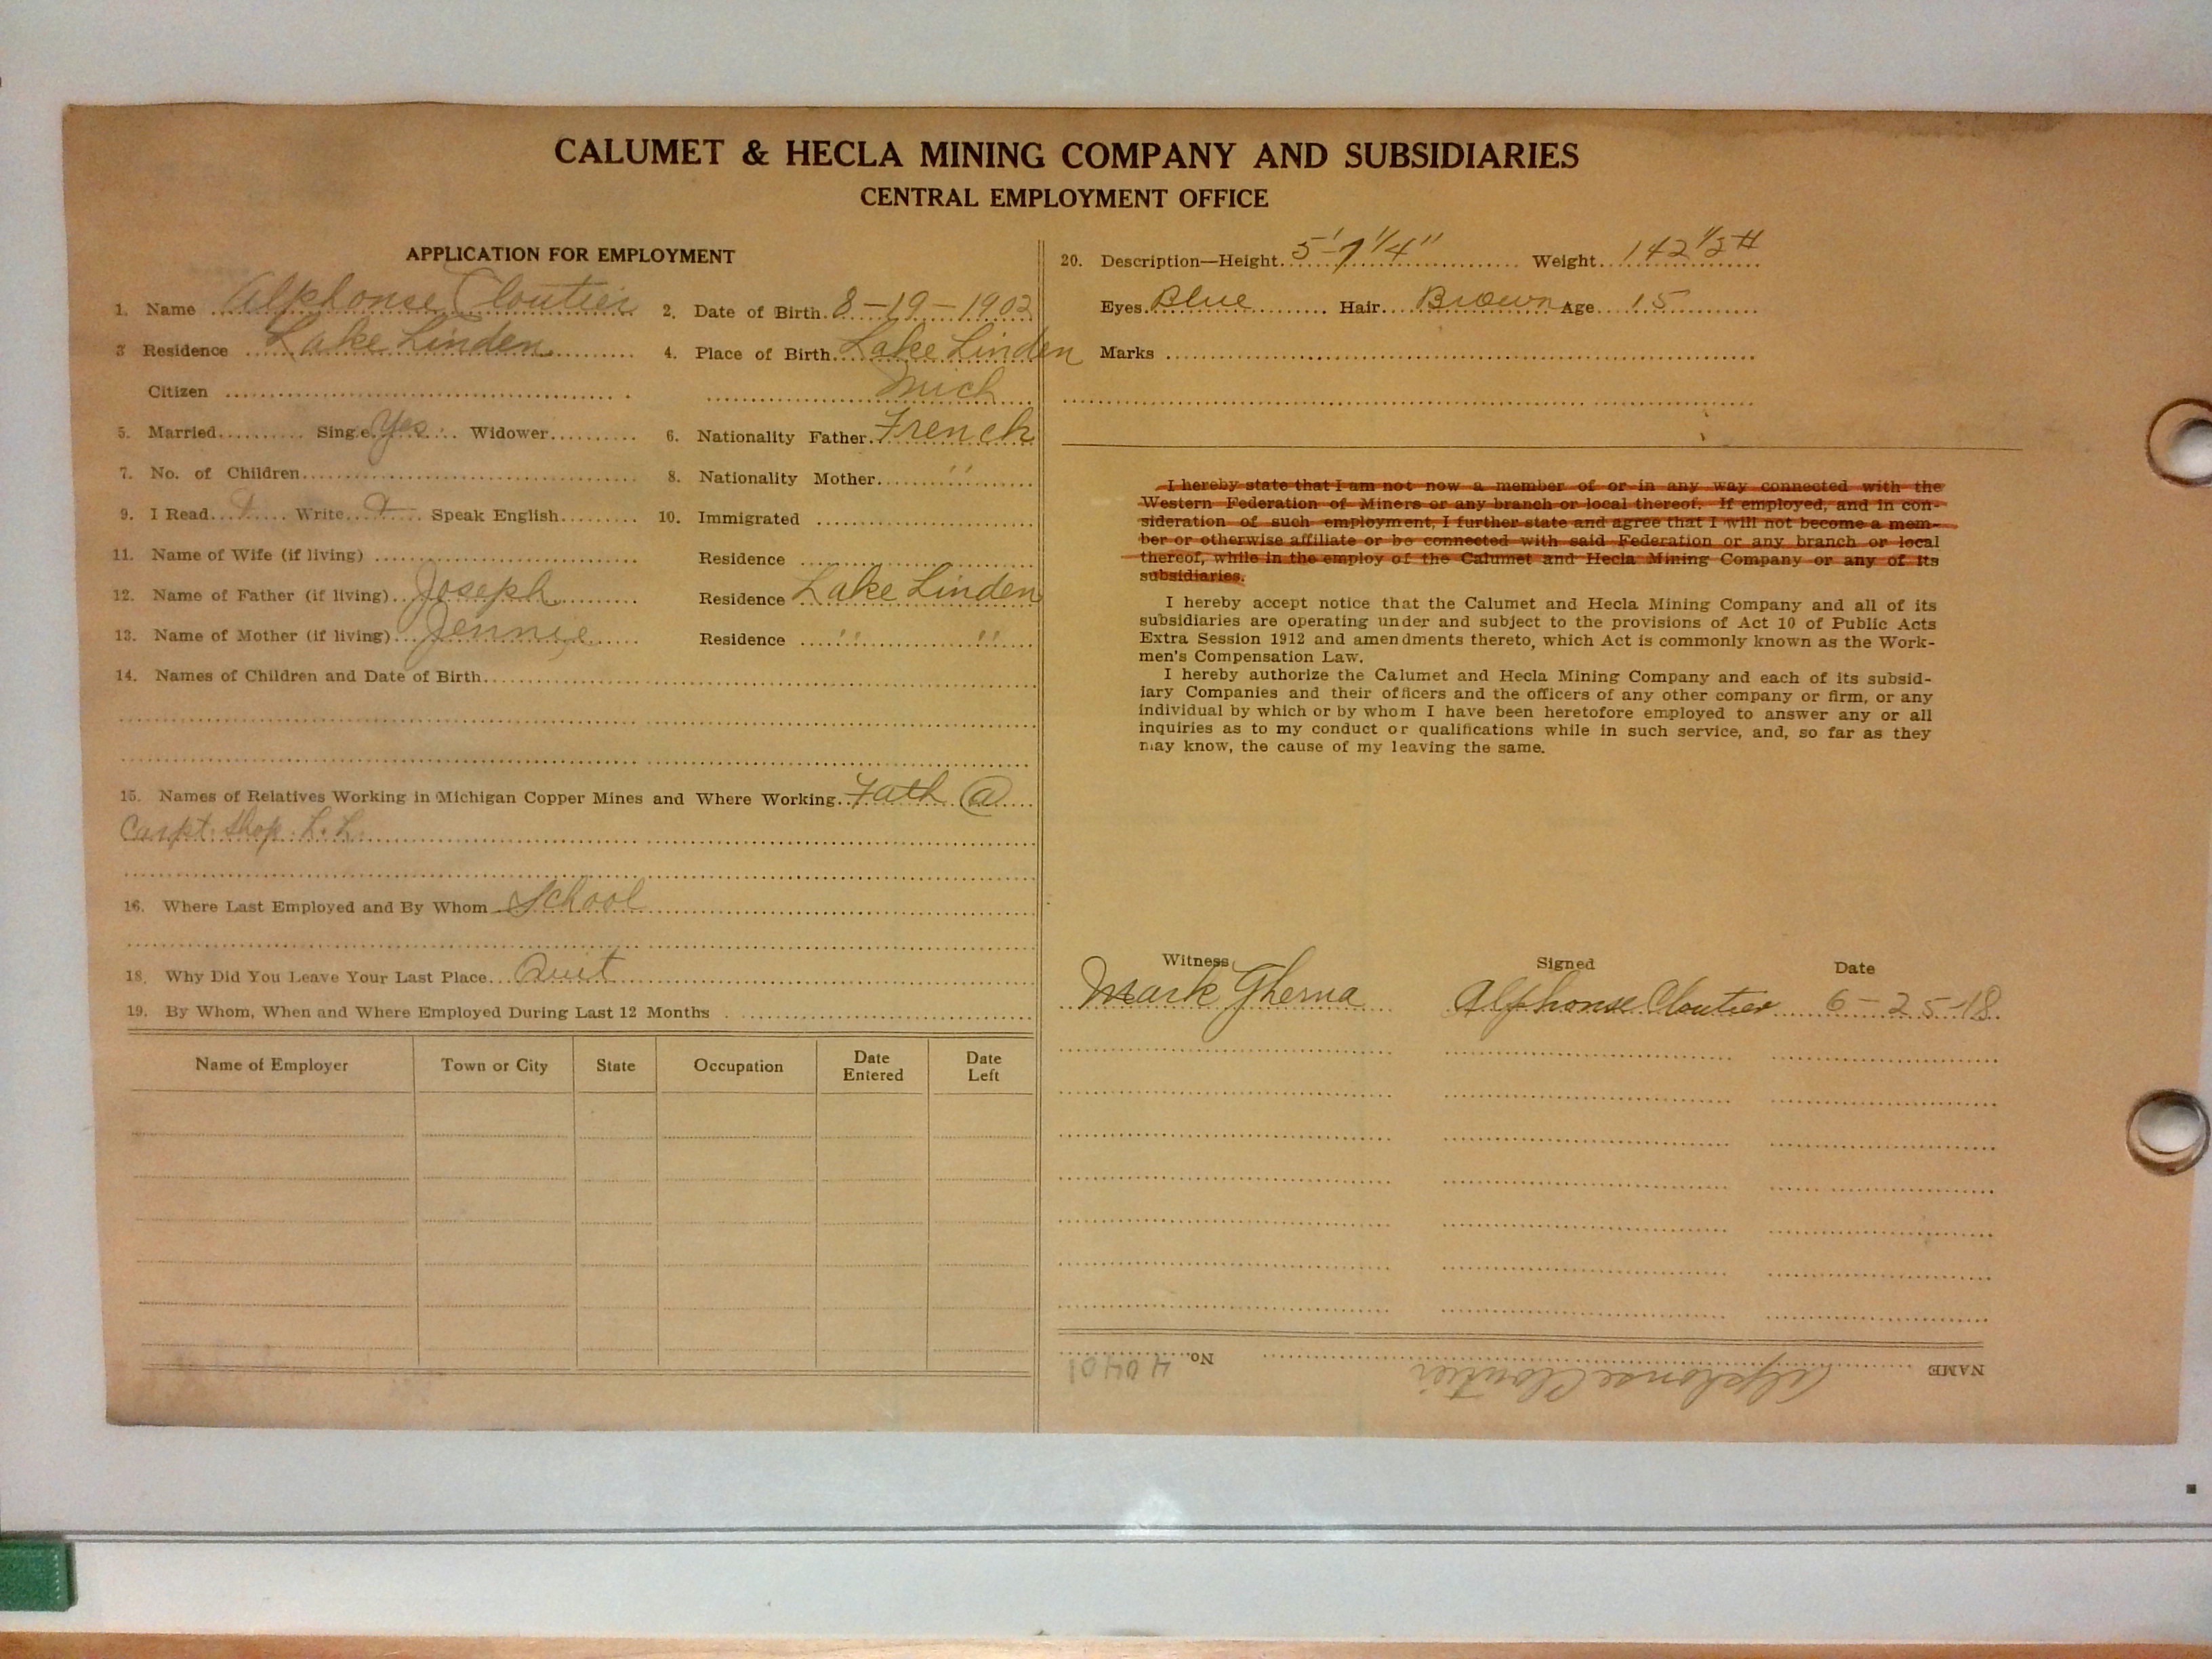 CALUMET & HECLA MINING COMPANY AND SUBSIDIARIES
CENTRAL EMPLOYMENT OFFICE
APPLICATION FOR EMPLOYMENT
1. Name Alphonse Cloutier 2. Date of Birth 8-19-1902
3 Residence Lake Linden 4. Place of Birth Lake Linden
Citizen Mich
5. Married Single Yes Widower 6. Nationality Father French
7. No. of Children 8. Nationality Mother " "
9. I Read Write Speak English 10. Immigrated
11. Name of Wife (if living) Residence
12. Name of Father (if living) Joseph Residence Lake Linden
13. Name of Mother (if living) Jennie Residence " "
14. Names of Children and Date of Birth
15. Names of Relatives Working in Michigan Copper Mines and Where Working Fath @
Carpt. Shop L. L.
16. Where Last Employed and By Whom School
18. Why Did You Leave Your Last Place Quit
19. By Whom, When and Where Employed During Last 12 Months
Name of Employer Town or City State Occupation Date Entered Date Left
20. Description—Height 5'-7 1/4" Weight 142 1/2 #
Eyes Blue Hair Brown Age 15
Marks
I hereby state that I am not now a member of or in any way connected with the
Western Federation of Miners or any branch or local thereof. If employed, and in con-
sideration of such employment, I further state and agree that I will not become a mem-
ber or otherwise affiliate or be connected with said Federation or any branch or local
thereof, while in the employ of the Calumet and Hecla Mining Company or any of its
subsidiaries.
I hereby accept notice that the Calumet and Hecla Mining Company and all of its
subsidiaries are operating under and subject to the provisions of Act 10 of Public Acts
Extra Session 1912 and amendments thereto, which Act is commonly known as the Work-
men's Compensation Law.
I hereby authorize the Calumet and Hecla Mining Company and each of its subsid-
iary Companies and their officers and the officers of any other company or firm, or any
individual by which or by whom I have been heretofore employed to answer any or all
inquiries as to my conduct or qualifications while in such service, and, so far as they
may know, the cause of my leaving the same.
Witness Signed Date
Mark Gherna Alphonse Cloutier 6-25-18
NAME Alphonse Cloutier No. 40401